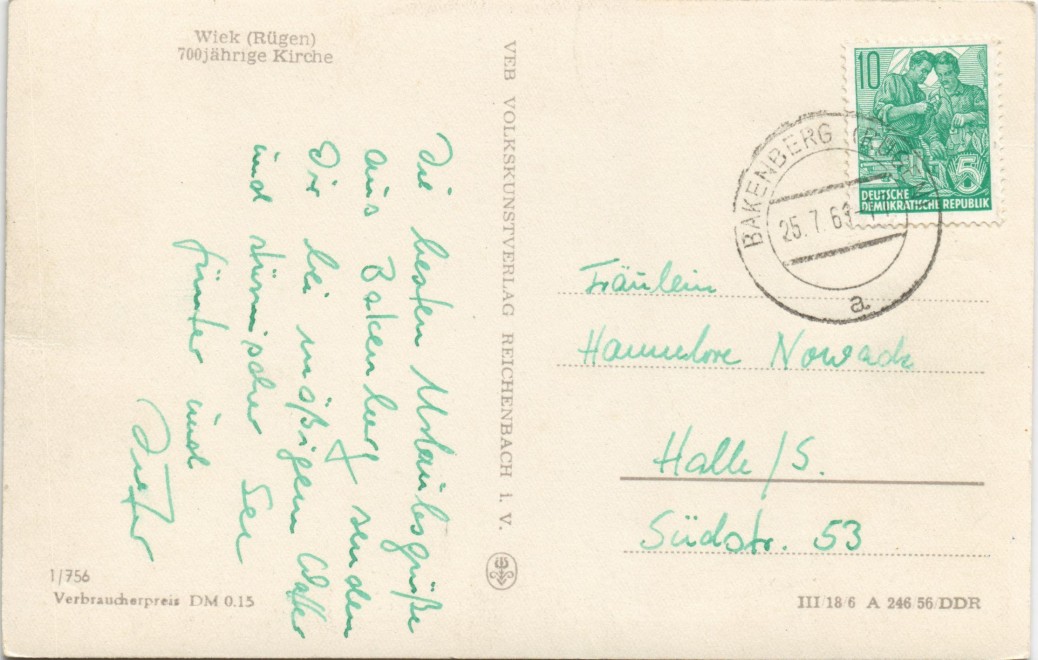 Wiek (Rügen)
700jährige Kirche
VEB VOLKSKUNSTVERLAG REICHENBACH i. V.
Die besten Urlaubsgrüße
aus Bakenberg senden
Dir bei mäßigem Wetter
und stürmischer See
Günter und
Dieter
10
5
DEUTSCHE
DEMOKRATISCHE REPUBLIK
BAKENBERG (RÜGEN)
25.7.61
a
Fräulein
Hannelore Nowack
Halle/S.
Südstr. 53
1/756
Verbraucherpreis DM 0.15
III/18/6 A 246/56/DDR